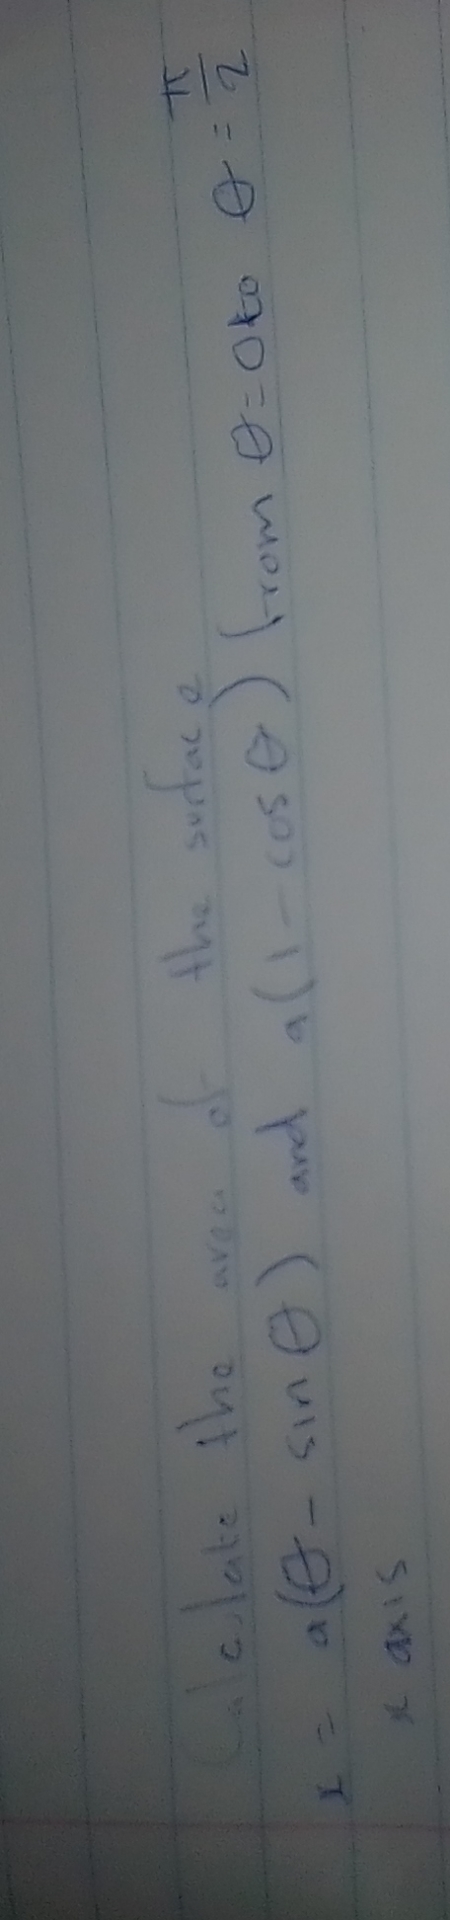 Calculate the area of the surface
x = a(θ - sin θ) and a(1 - cos θ) from θ = 0 to θ = π/2
x axis